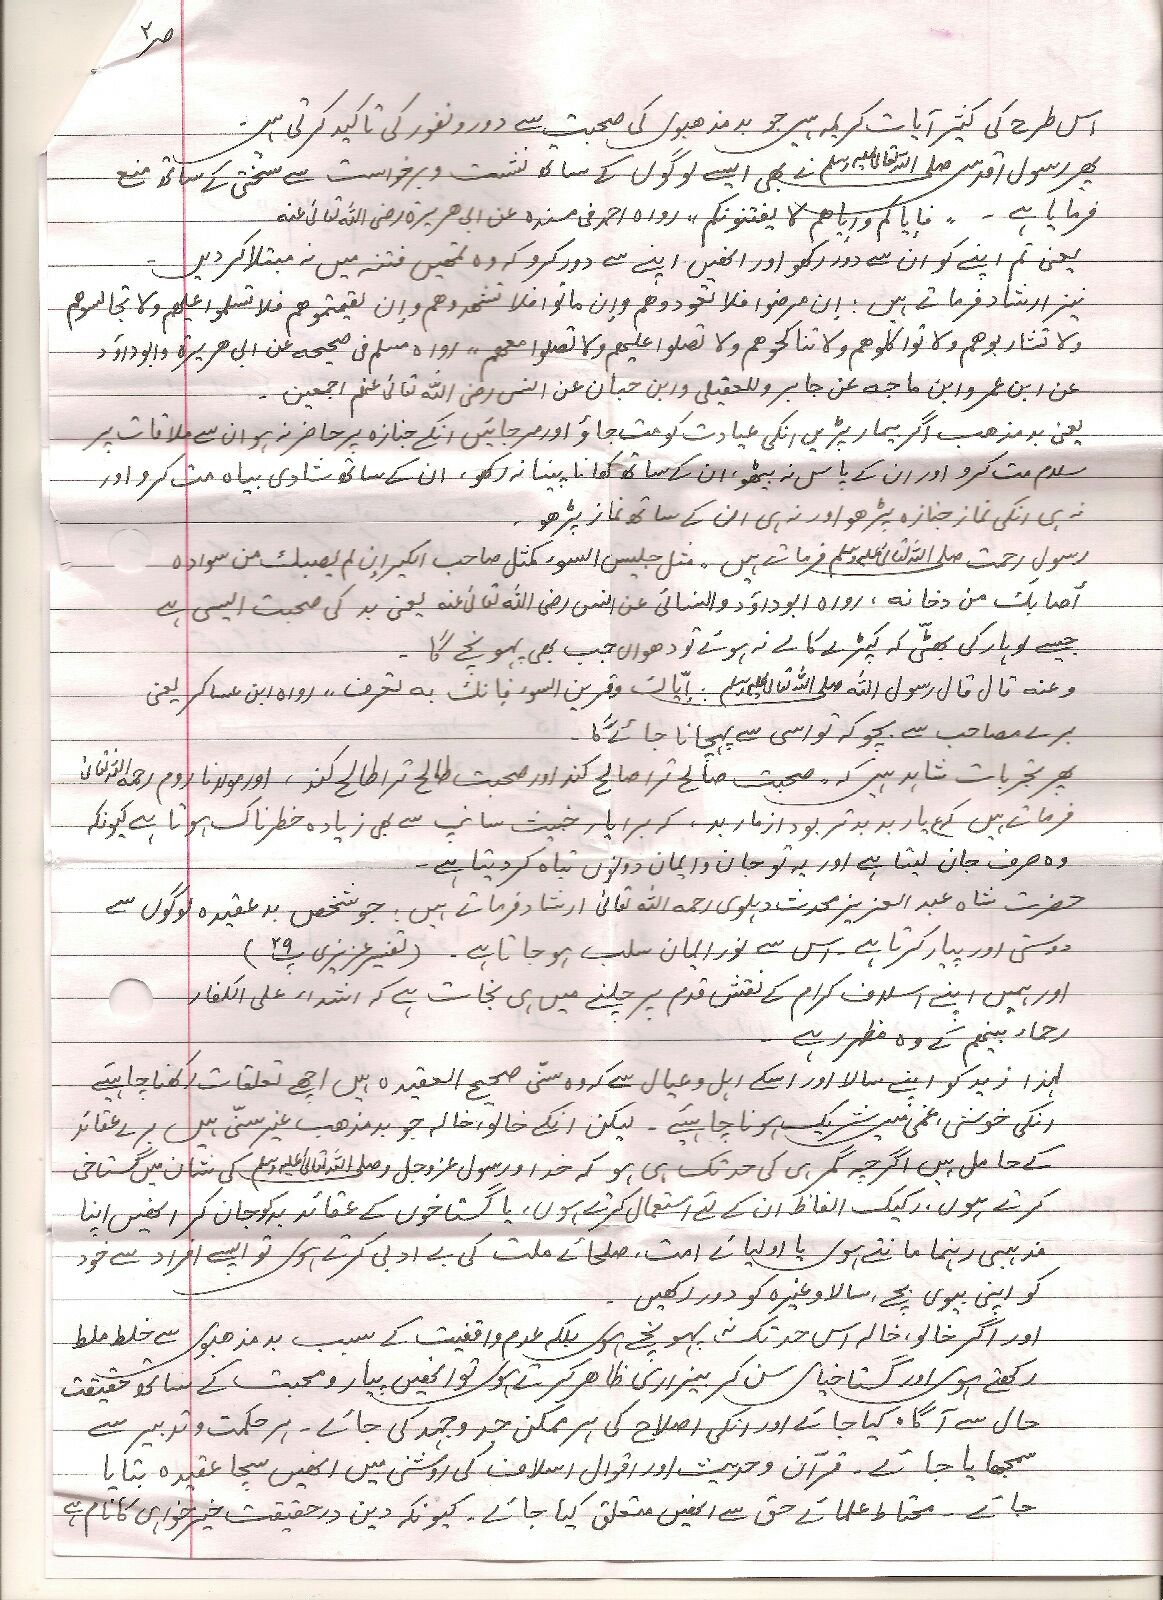 ص۲
اس طرح کی کثیر آیات کریمہ ہیں جو بد مذھبوں کی صحبت سے دور و نفور کی تاکید کرتی ہیں۔
پھر رسول اقدس صلی اللہ تعالیٰ علیہ وسلم نے بھی ایسے لوگوں کے ساتھ نشست و برخواست سے سختی کے ساتھ منع
فرمایا ہے ۔ „ فإیاکم وإیاھم لا یفتنونکم „ رواہ احمد فی مسندہ عن ابی ھریرۃ رضی اللہ تعالیٰ عنہ
یعنی تم اپنے کو ان سے دور رکھو اور انھیں اپنے سے دور کرو کہ وہ تمھیں فتنہ میں نہ مبتلا کر دیں۔
نیز ارشاد فرماتے ہیں : إن مرضوا فلا تعودوھم وإن ماتوا فلا تشھدوھم وإن لقیتموھم فلا تسلموا علیھم ولا تجالسوھم
ولا تشاربوھم ولا تواکلوھم ولا تناکحوھم ولا تصلوا علیھم ولا تصلوا معھم „ رواہ مسلم فی صحیحہ عن ابی ھریرۃ وابو داؤد
عن ابن عمر وابن ماجہ عن جابر وللعقیلی وابن حبان عن انس رضی اللہ تعالیٰ عنھم اجمعین ۔
یعنی بد مذھب اگر بیمار پڑیں انکی عیادت کو مت جاؤ اور مر جائیں انکے جنازہ پر حاضر نہ ہو ان سے ملاقات پر
سلام مت کرو اور ان کے پاس نہ بیٹھو، ان کے ساتھ کھانا پینا نہ رکھو، ان کے ساتھ شادی بیاہ مت کرو اور
نہ ہی انکی نماز جنازہ پڑھو اور نہ ہی ان کے ساتھ نماز پڑھو ۔
رسول رحمت صلی اللہ تعالیٰ علیہ وسلم فرماتے ہیں „ مثل جلیس السوء کمثل صاحب الکیر إن لم یصبک من سوادہ
أصابک من دخانہ ، رواہ ابو داؤد والنسائی عن انس رضی اللہ تعالیٰ عنہ یعنی بد کی صحبت ایسی ہے
جیسے لوہار کی بھٹی کہ کپڑے کالے نہ ہوئے تو دھواں جب بھی پہونچے گا ۔
وعنہ قال قال رسول اللہ صلی اللہ تعالیٰ علیہ وسلم : إیاک وقرین السوء فإنک بہ تعرف „ رواہ ابن عساکر یعنی
برے مصاحب سے بچو کہ تو اسی سے پہچانا جائے گا ۔
پھر تجربات شاہد ہیں کہ „ صحبت صالح ترا صالح کند اور صحبت طالح ترا طالح کند ، اور مولانا روم رحمہ اللہ تعالیٰ
فرماتے ہیں کہ ع یار بد بدتر بود از مار بد ، کہ برا یار خبیث سانپ سے بھی زیادہ خطرناک ہوتا ہے کیونکہ
وہ صرف جان لیتا ہے اور یہ تو جان و ایمان دونوں تباہ کر دیتا ہے ۔
حضرت شاہ عبد العزیز محدث دہلوی رحمہ اللہ تعالیٰ ارشاد فرماتے ہیں : جو شخص بد عقیدہ لوگوں سے
دوستی اور پیار کرتا ہے ۔ اس سے نور ایمان سلب ہو جاتا ہے ۔ (تفسیر عزیزی پ ۲۹)
اور ہمیں اپنے اسلاف کرام کے نقش قدم پر چلنے میں ہی نجات ہے کہ اشداء علی الکفار
رحماء بینھم کے وہ مظہر رہے ۔
لہذا زید کو اپنے سالا اور اسکے اہل و عیال سے کہ وہ سنی صحیح العقیدہ ہیں اچھے تعلقات رکھنا چاہئیے
انکی خوشی، غمی میں شریک ہونا چاہئیے ۔ لیکن انکے خالو، خالہ جو بد مذھب غیر سنی ہیں برے عقائد
کے حامل ہیں اگرچہ گمرہی کی حد تک ہی ہو کہ خدا و رسول عز وجل و صلی اللہ تعالیٰ علیہ وسلم کی شان میں گستاخی
کرتے ہوں، رکیک الفاظ ان کے لئے استعمال کرتے ہوں، یا گستاخوں کے عقائد بد کو جان کر انھیں اپنا
مذہبی رہنما مانتے ہوں یا اولیائے امت، صلحائے ملت کی بے ادبی کرتے ہوں تو ایسے افراد سے خود
کو اپنی بیوی بچے، سالا وغیرہ کو دور رکھیں ۔
اور اگر خالو، خالہ اس حد تک نہ پہونچے ہوں بلکہ عدم واقفیت کے سبب بد مذھبوں سے خلط ملط
رکھتے ہوں اور گستاخیاں سن کر بیزاری ظاہر کرتے ہوں تو انھیں پیار و محبت کے ساتھ حقیقت
حال سے آگاہ کیا جائے اور انکی اصلاح کی ہر ممکن جد و جہد کی جائے ۔ ہر حکمت و تدبیر سے
سمجھایا جائے ۔ قرآن و حدیث اور اقوال اسلاف کی روشنی میں انھیں سچا عقیدہ بتایا
جائے ۔ محتاط علمائے حق سے انھیں متعلق کیا جائے ۔ کیونکہ دین در حقیقت خیر خواہی کا نام ہے